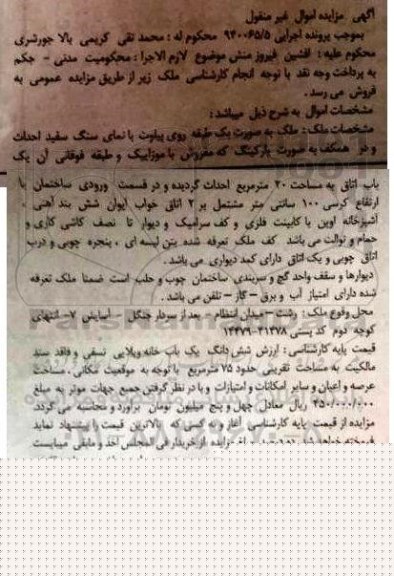 آگهی مزایده اموال غیر منقول
بموجب پرونده اجرایی ۹۴۰۰۶۵/۵ محکوم له : محمد تقی کریمی بالا جورشری
محکوم علیه : افشین فیروز منش موضوع لازم الاجرا : محکومیت مدنی - حکم
به پرداخت وجه نقد با توجه انجام کارشناسی ملک زیر از طریق مزایده عمومی به
فروش می رسد .
مشخصات اموال به شرح ذیل میباشد :
مشخصات ملک : ملک به صورت یک طبقه روی پیلوت با نمای سنگ سفید احداث
و در همکف به صورت پارکینگ که مفروش با موزاییک و طبقه فوقانی آن یک
باب اتاق به مساحت ۲۰ مترمربع احداث گردیده و در قسمت ورودی ساختمان با
ارتفاع کرسی ۱۰۰ سانتی متر مشتمل بر ۲ اتاق خواب ایوان شش بند آهنی ،
آشپزخانه اوپن با کابینت فلزی و کف سرامیک و دیوار تا نصف کاشی کاری و
حمام و توالت می باشد کف ملک تعرفه شده بتن لیسه ای ، پنجره چوبی و درب
اتاق چوبی و یک اتاق دارای کمد دیواری می باشد .
دیوارها و سقف واحد گچ و سربندی ساختمان چوب و حلب است ضمنا ملک تعرفه
شده دارای امتیاز آب و برق - گاز - تلفن می باشد .
محل وقوع ملک : رشت - میدان انتظام - بعد از سردار جنگل - آسایش ۷- انتهای
کوچه دوم کد پستی ۴۱۴۷۸-۱۴۴۷۹
قیمت پایه کارشناسی : ارزش شش دانگ یک باب خانه ویلایی نسقی و فاقد سند
مالکیت به مساحت تقریبی حدود ۷۵ مترمربع با توجه به موقعیت مکانی ، مساحت
عرصه و اعیان و سایر امکانات و امتیازات و با در نظر گرفتن جمیع جهات موثر به مبلغ
۴۵۰/۰۰۰/۰۰۰ ریال معادل چهل و پنج میلیون تومان برآورد و محاسبه می گردد.
مزایده از قیمت پایه کارشناسی آغاز و به کسی که بالاترین قیمت را پیشنهاد نماید
فروخته خواهد شد ده درصد مبلغ مزایده از خریدار فی المجلس اخذ و مابقی میبایست